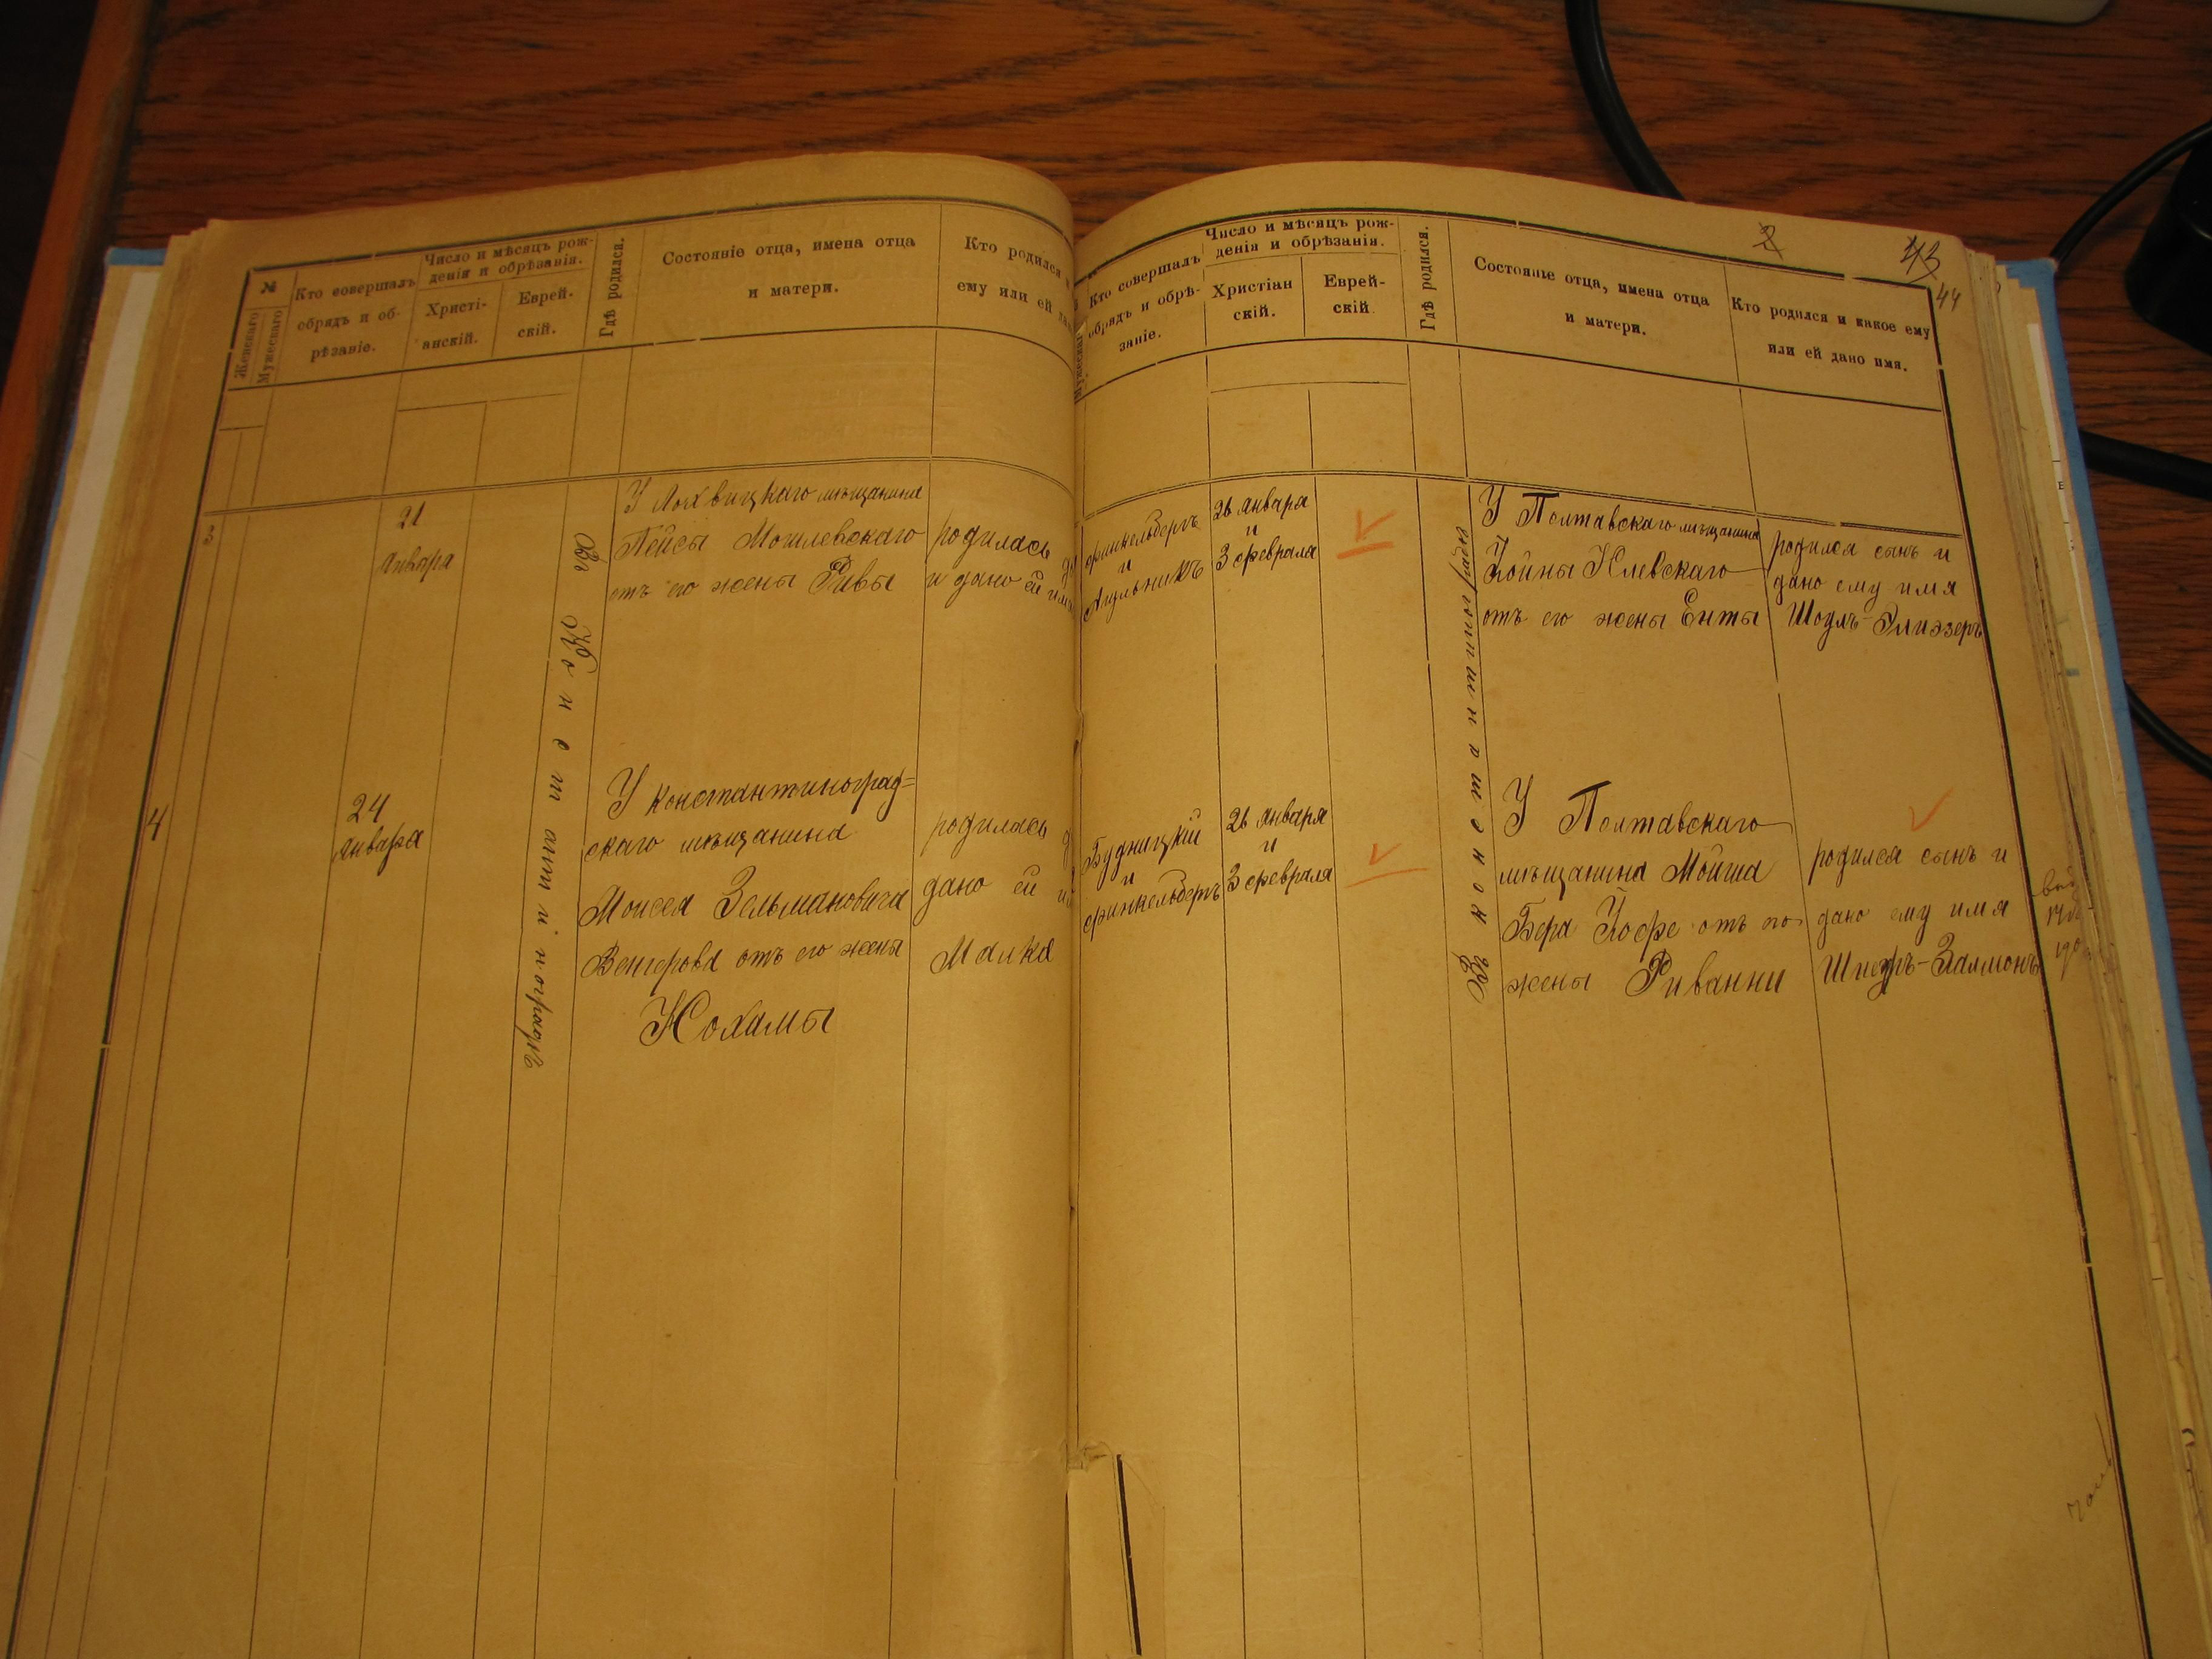 №
Женскаго
Мужескаго
Кто совершалъ
обрядъ и об-
рѣзаніе.
Число и мѣсяцъ рож-
денія и обрѣзанія.
Христі-
анскій.
Еврей-
скій.
Гдѣ родился.
Состояніе отца, имена отца
и матери.
Кто родился
ему или ей
3
21
Января
Въ Константиноградѣ
У Лохвицкаго мѣщанина
Пейсы Могилевскаго
отъ его жены Ривы
родилась
и дано ей имя
4
24
Января
У Константиноград-
скаго мѣщанина
Моисея Зельмановича
Венгерова отъ его жены
Нохамы
родилась
дано ей
Малка
2
43
44
Мужескаго
Кто совершалъ
обрядъ и обрѣ-
заніе.
Число и мѣсяцъ рож-
денія и обрѣзанія.
Христіан
скій.
Еврей-
скій
Гдѣ родился.
Состояніе отца, имена отца
и матери.
Кто родился и какое ему
или ей дано имя.
Финкельбергъ
и
26 Января
и
3 февраля
Въ Константиноградѣ
У Полтавскаго мѣщанина
отъ его жены Енты
родился сынъ и
дано ему имя
Шоулъ-Элиэзеръ
Будницкій
и
Финкельбергъ
26 Января
и
3 февраля
У Полтавскаго
мѣщанина Мойша
Бера отъ
жены
родился сынъ и
дано ему имя